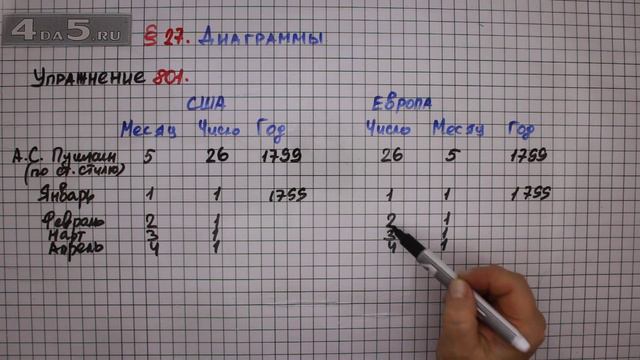 4DA5.RU
§ 27. Диаграммы
Упражнение 801.
США Европа
Месяц Число Год Число Месяц Год
А.С. Пушкин 5 26 1799 26 5 1799
(по ст. стилю)
Январь 1 1 1799 1 1 1799
Февраль 2 1 2 1
Март 3 1 3 1
Апрель 4 1 4 1